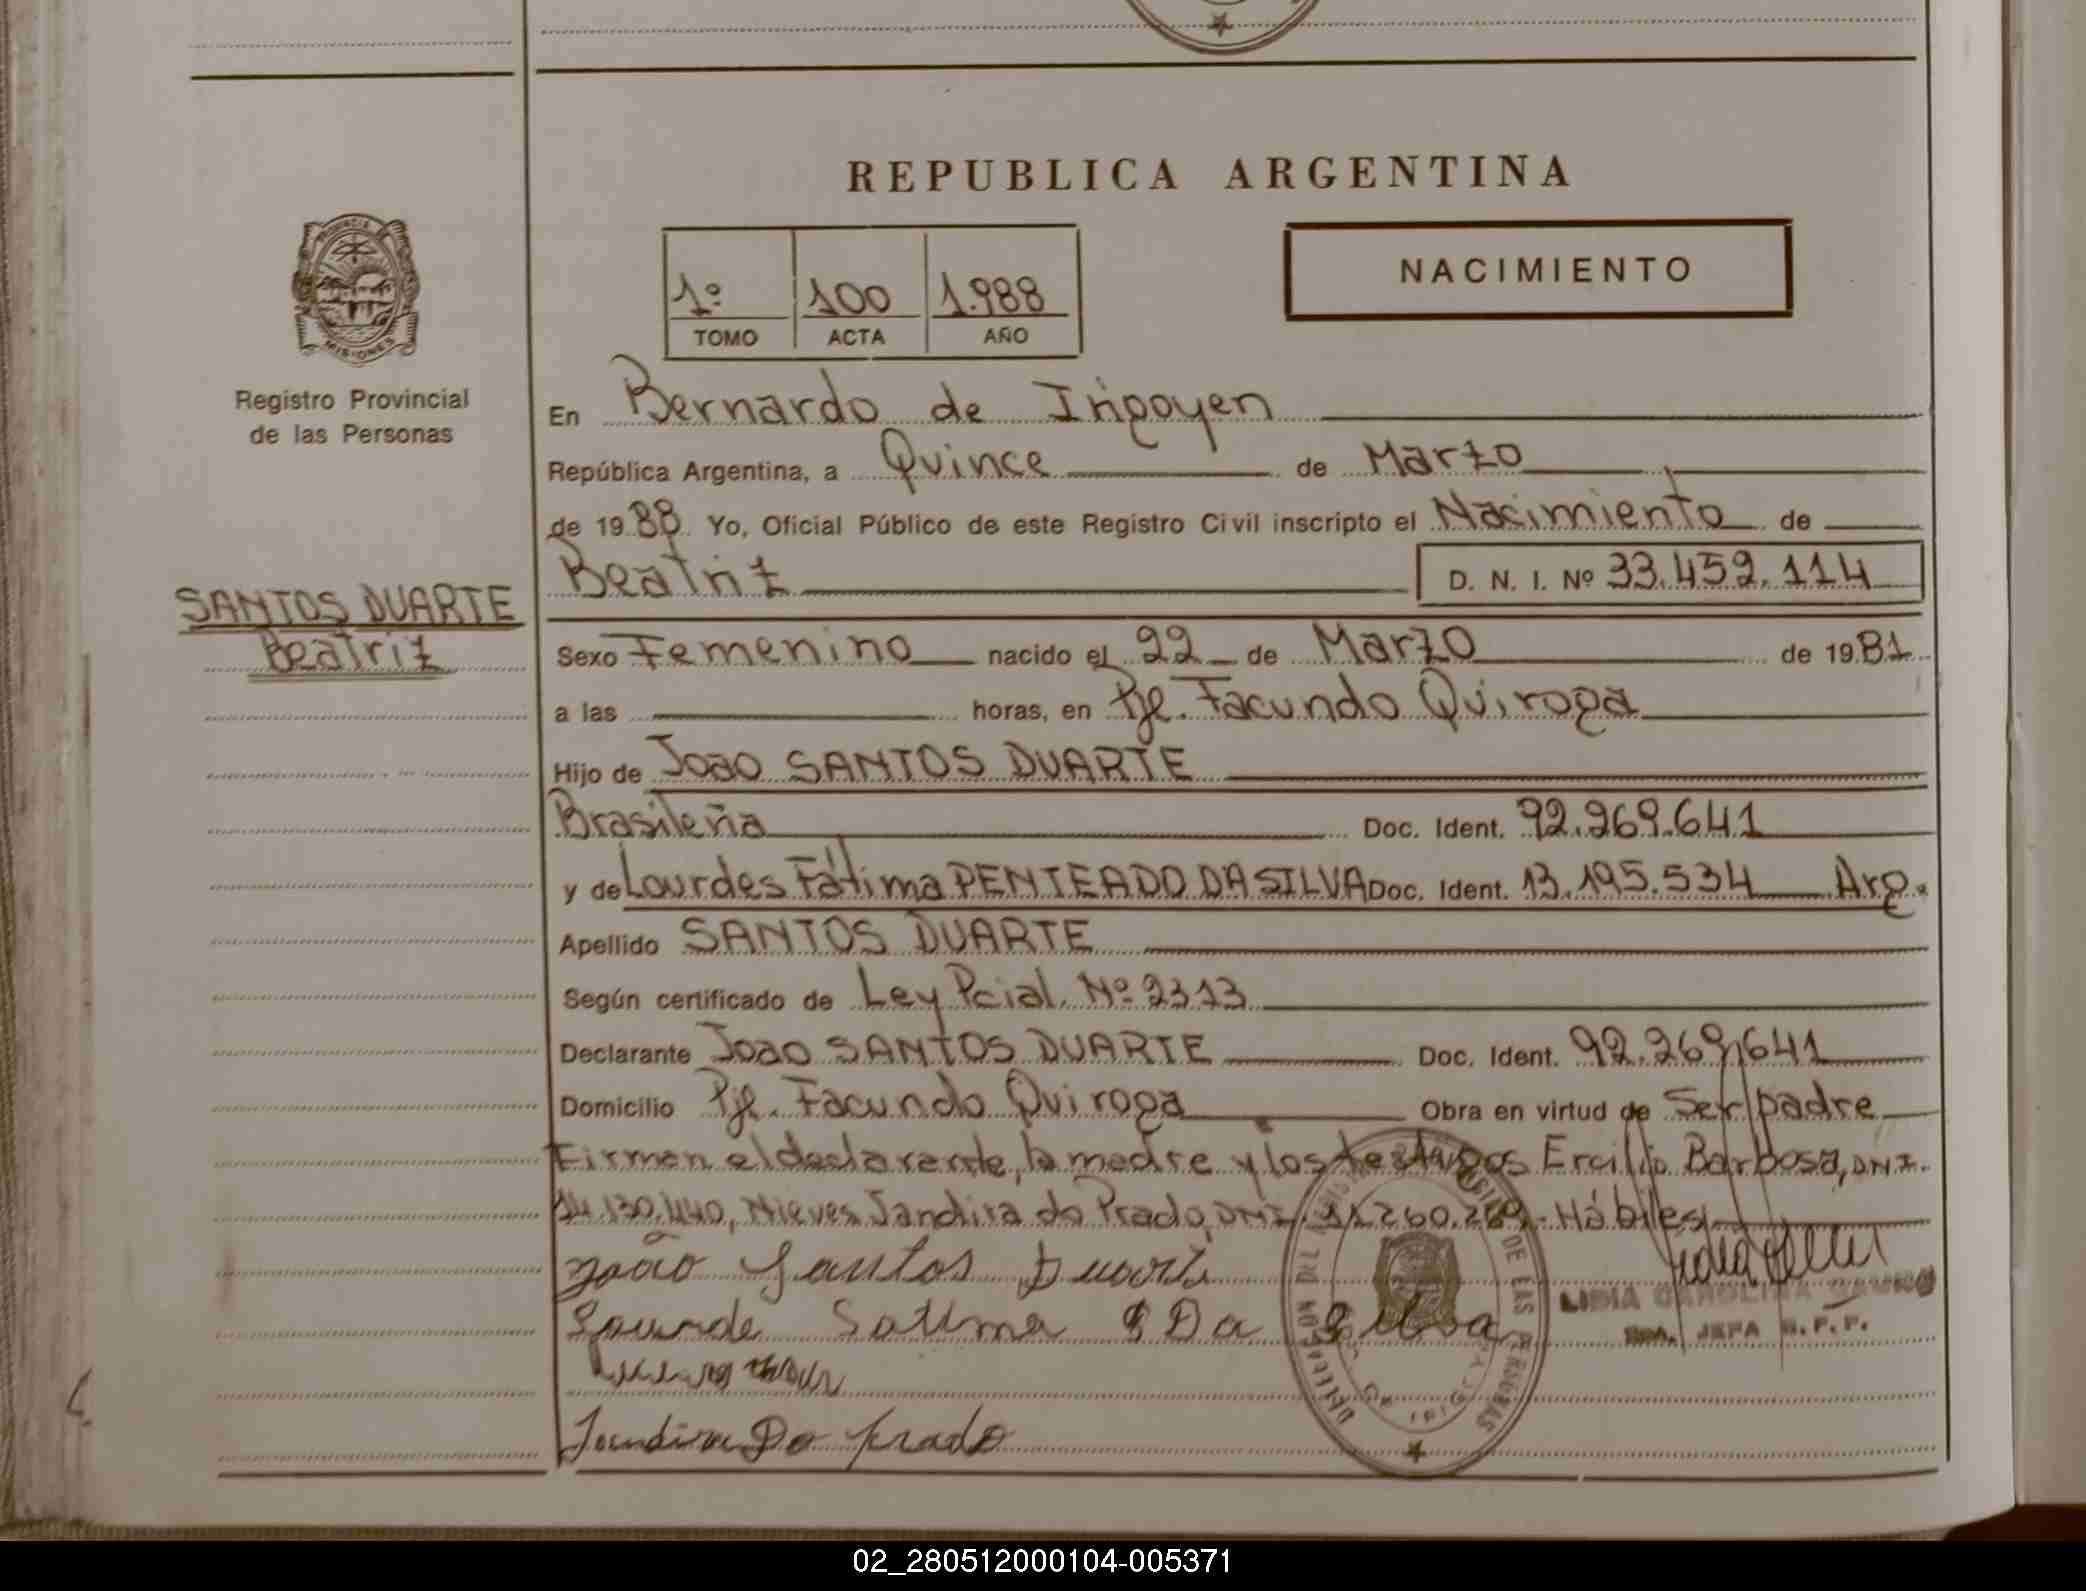 REPUBLICA ARGENTINA
PROVINCIA DE
MISIONES
Registro Provincial
de las Personas
1º 100 1.988
TOMO ACTA AÑO
NACIMIENTO
En Bernardo de Irigoyen
República Argentina, a Quince de Marzo
de 1988 Yo, Oficial Público de este Registro Civil inscripto el Nacimiento de
Beatriz D. N. I. Nº 33.459.114
SANTOS DUARTE
Beatriz
Sexo Femenino nacido el 22 de Marzo de 1981
a las horas, en Pje. Facundo Quiroga
Hijo de Joao SANTOS DUARTE
Brasileña Doc. Ident. 92.269.641
y de Lourdes Fátima PENTEADO DA SILVA Doc. Ident. 13.195.534 Arg.
Apellido SANTOS DUARTE
Según certificado de Ley Pcial. Nº 2313
Declarante Joao SANTOS DUARTE Doc. Ident. 92.269.641
Domicilio Pje. Facundo Quiroga Obra en virtud de Ser padre
Firman el declarante, la madre y los testigos Ercilio Barbosa, DNI.
14.130.440, Nieves Jandira do Prado, DNI. 11.260.269.- Hábiles
João Santos Duarte
Lourde Fatima P Da Silva
LIDIA CAROLINA
JEFA R. P. P.
Jandira Do Prado
02_280512000104-005371